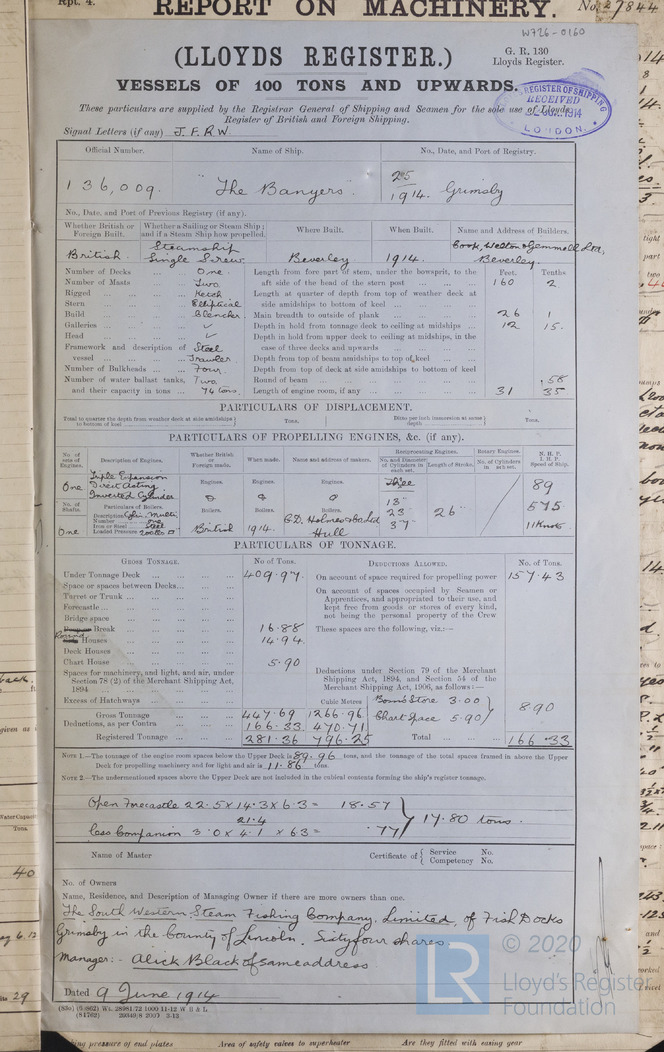 Rpt. 4.
REPORT ON MACHINERY.
No. 27844
W726-0160
(LLOYDS REGISTER.)
G. R. 130
Lloyds Register.
VESSELS OF 100 TONS AND UPWARDS.
REGISTER OF SHIPPING
RECEIVED
1914
LONDON.
These particulars are supplied by the Registrar General of Shipping and Seamen for the sole use of Lloyds
Register of British and Foreign Shipping.
Signal Letters (if any) J. F. R. W.
Official Number. Name of Ship. No., Date, and Port of Registry.
136,009. "The Banyers". 205/1914. Grimsby
No., Date, and Port of Previous Registry (if any).
Whether British or Foreign Built. Whether a Sailing or Steam Ship; and if a Steam Ship how propelled. Where Built. When Built. Name and Address of Builders.
British. Steamship Single Screw. Beverley 1914. Cook, Welton & Gemmell Ltd, Beverley.
Number of Decks ... One. Length from fore part of stem, under the bowsprit, to the aft side of the head of the stern post ... Feet. 160 Tenths 2
Number of Masts ... Two
Rigged ... Ketch Length at quarter of depth from top of weather deck at side amidships to bottom of keel ...
Stern ... Elliptical
Build ... Clencher Main breadth to outside of plank ... 26 1
Galleries ... ✓ Depth in hold from tonnage deck to ceiling at midships ... 12 15.
Head ... ✓ Depth in hold from upper deck to ceiling at midships, in the case of three decks and upwards ...
Framework and description of vessel ... Steel Trawler. Depth from top of beam amidships to top of keel ...
Number of Bulkheads ... Four. Depth from top of deck at side amidships to bottom of keel
Number of water ballast tanks, and their capacity in tons ... Two 74 tons. Round of beam ... .58
Length of engine room, if any ... 31 35
PARTICULARS OF DISPLACEMENT.
Total to quarter the depth from weather deck at side amidships to bottom of keel Tons. Ditto per inch immersion at same depth Tons.
PARTICULARS OF PROPELLING ENGINES, &c. (if any).
No. of sets of Engines. Description of Engines. Whether British or Foreign made. When made. Name and address of makers. Reciprocating Engines. No. and Diameter of Cylinders in each set. Length of Stroke. Rotary Engines. No. of Cylinders in each set. N. H. P. I. H. P. Speed of Ship.
One Triple Expansion Direct Acting Inverted Cylinder Engines. Engines. Engines. Three 89
No. of Shafts. Particulars of Boilers. Boilers. Boilers. Boilers. 13" 23 37" 26" 575
One Description Cylin. Multi. Number one Iron or Steel Steel Loaded Pressure 200 lbs British 1914. C.D. Holmes & Co Ltd Hull 11 Knots.
PARTICULARS OF TONNAGE.
GROSS TONNAGE. No of Tons. DEDUCTIONS ALLOWED. No. of Tons.
Under Tonnage Deck ... 409.97. On account of space required for propelling power 157.43
Space or spaces between Decks...
Turret or Trunk ... On account of spaces occupied by Seamen or Apprentices, and appropriated to their use, and kept free from goods or stores of every kind, not being the personal property of the Crew
Forecastle ...
Bridge space
Break ... 16.88 These spaces are the following, viz.:—
Round Houses ... 14.94
Deck Houses
Chart House ... 5.90
Spaces for machinery, and light, and air, under Section 78 (2) of the Merchant Shipping Act, 1894 ... Deductions under Section 79 of the Merchant Shipping Act, 1894, and Section 54 of the Merchant Shipping Act, 1906, as follows:—
Excess of Hatchways Cubic Metres Bosn's Store 3.00
Gross Tonnage ... 447.69 1266.96 Chart Space 5.90 8 90
Deductions, as per Contra ... 166.33 470.71
Registered Tonnage ... 281.36 796.25 Total ... 166.33
NOTE 1.—The tonnage of the engine room spaces below the Upper Deck is 89.96 tons, and the tonnage of the total spaces framed in above the Upper
Deck for propelling machinery and for light and air is 11.86 tons.
NOTE 2.—The undermentioned spaces above the Upper Deck are not included in the cubical contents forming the ship's register tonnage.
Open Forecastle 22.5 x 14.3 x 6.3 = 18.57
21.4
less Companion 3.0 x 4.1 x 6.3 = .77
17.80 tons.
Name of Master Certificate of Service No. Competency No.
No. of Owners
Name, Residence, and Description of Managing Owner if there are more owners than one.
The South Western Steam Fishing Company, Limited, of Fish Docks
Grimsby in the County of Lincoln. Sixtyfour shares.
Manager:- Alick Black of same address.
Dated 9 June 1914
LR
© 2020
Lloyd's Register
Foundation
king pressure of end plates Area of safety valves to superheater Are they fitted with easing gear